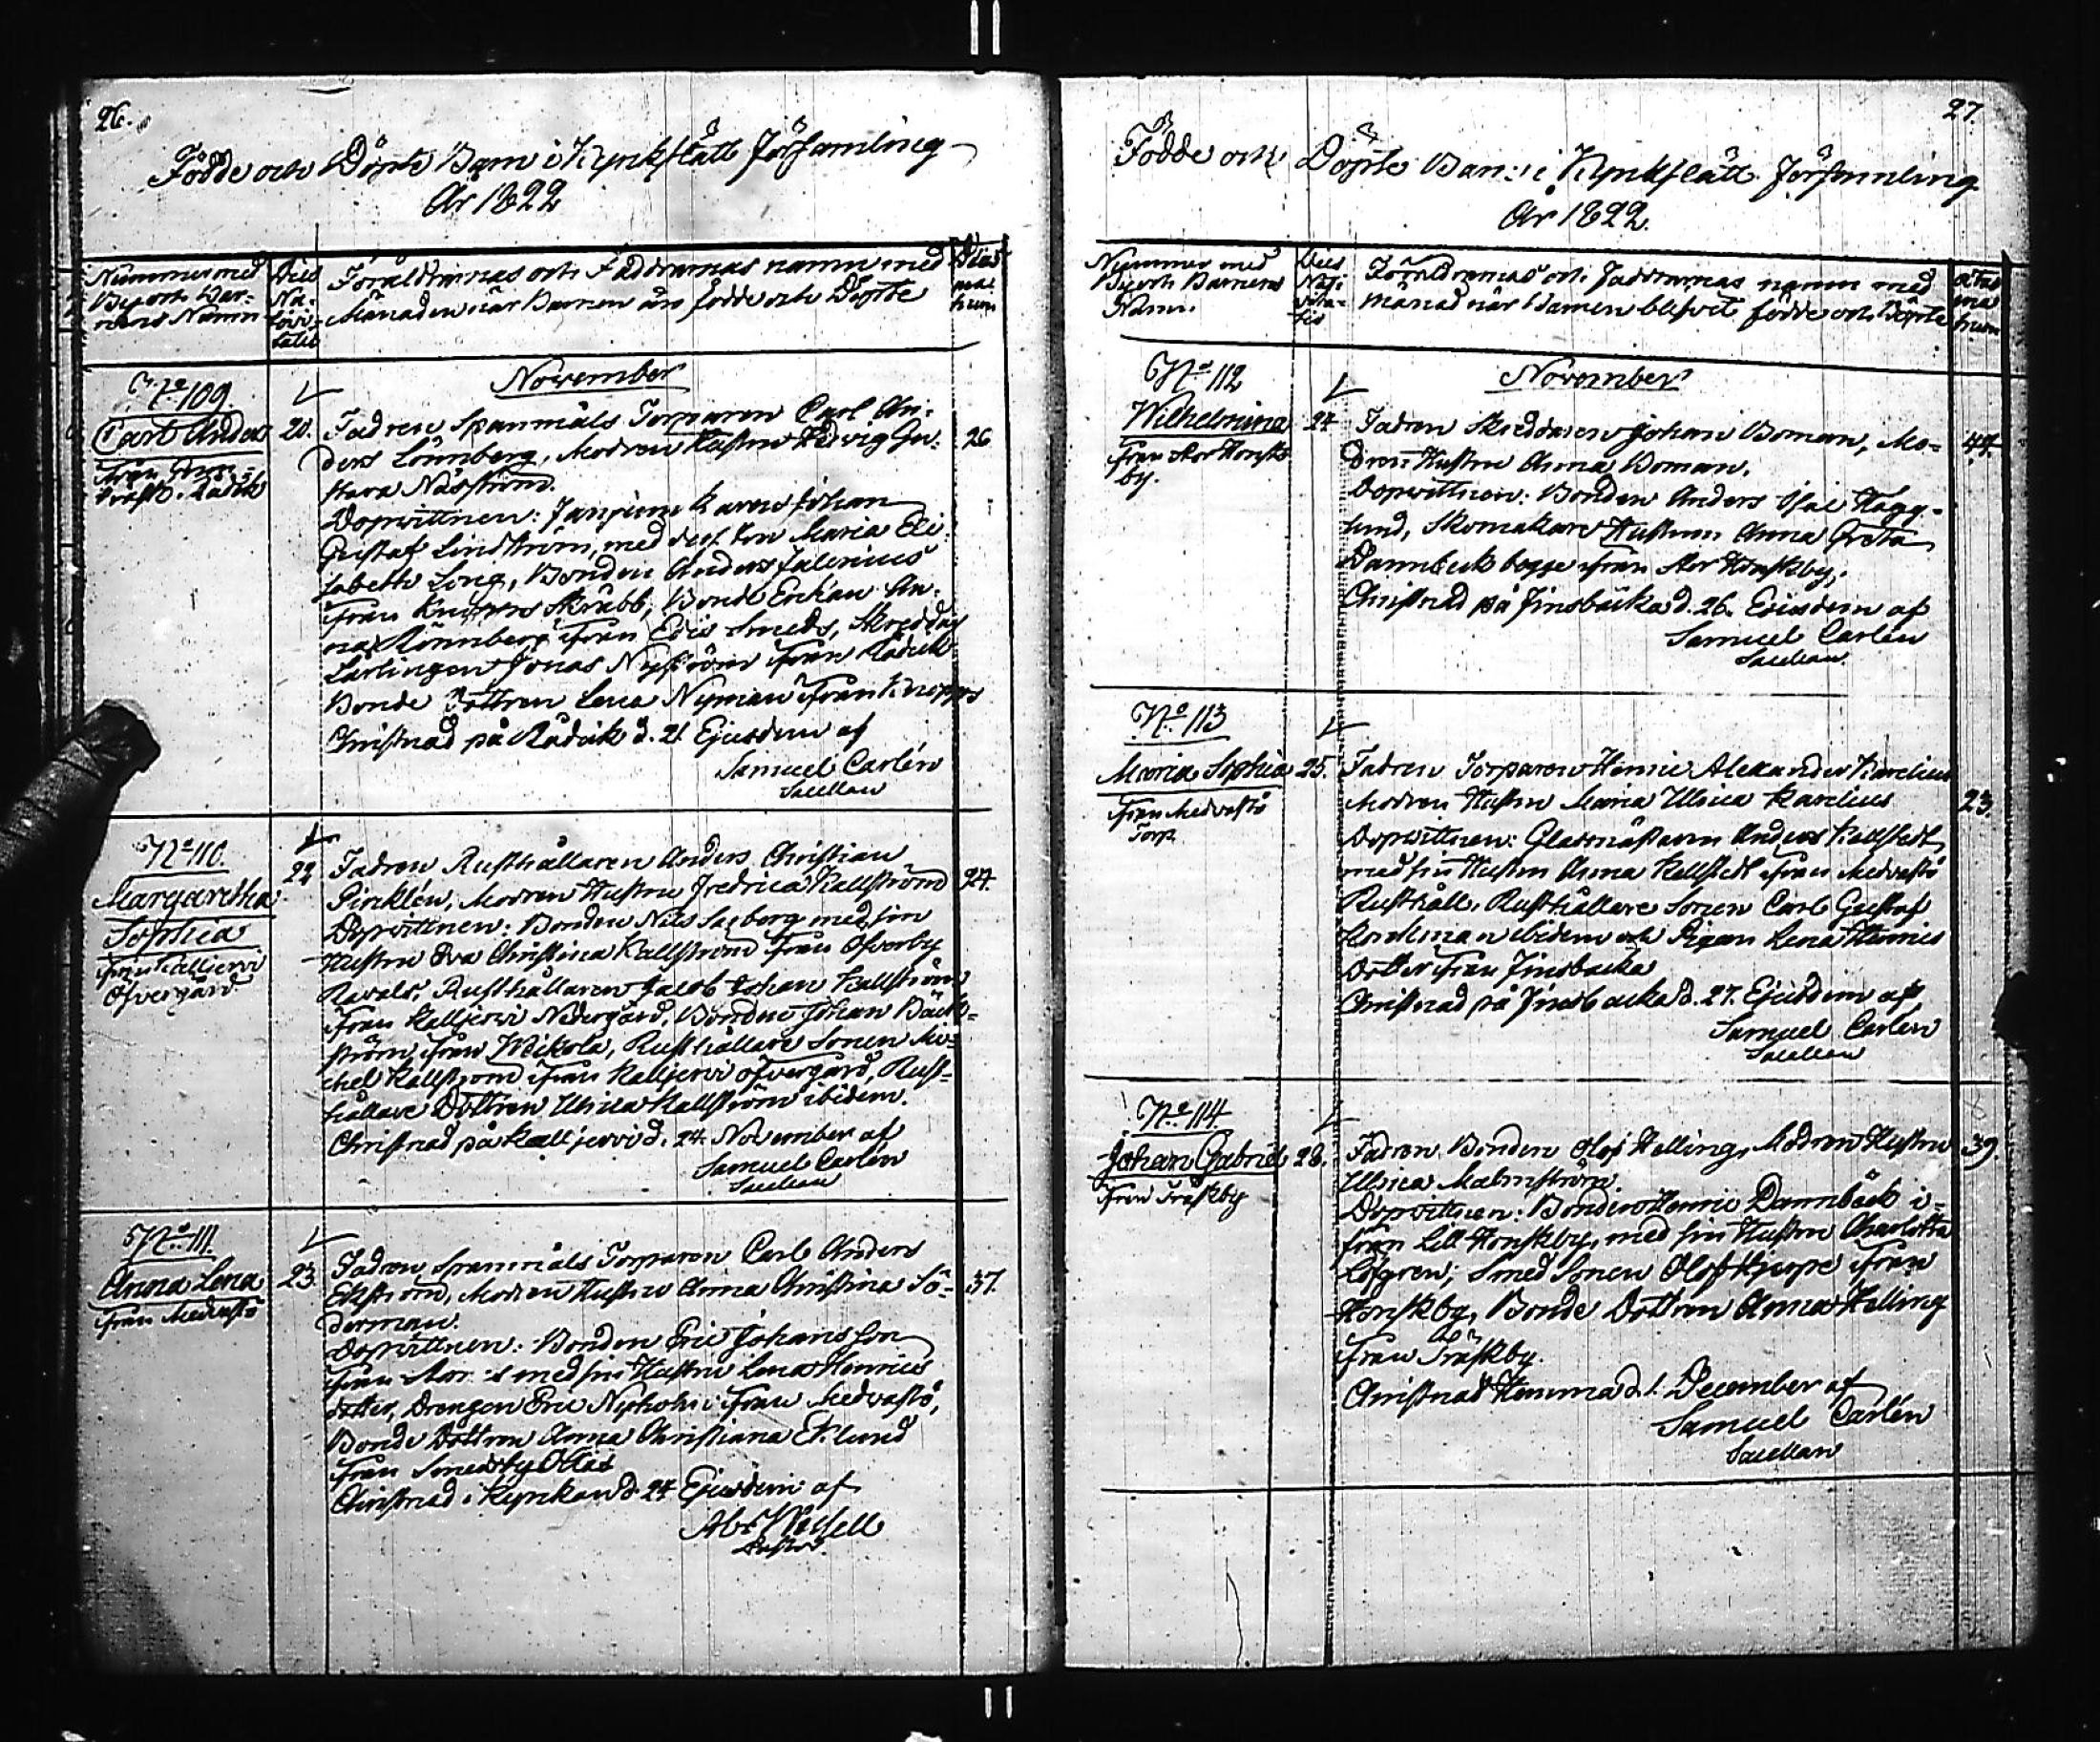 26.
Födde och Döpte Barn i Kyrkslätt Församling
År 1822
Nummer med
By och Bar-
nens Namn
Dies
Na-
tivi-
tatis
Föräldrarnas och Faddrarnas namn med
Månaden när Barnen äro födde och Döpte
Ætas
ma-
trum
November
No 109.
Carl Anders
från
Träsk. Rådik
20.
Fadren Spannmåls Torparen Carl An-
ders Lönnberg, Modren Hustru Hedvig Gu-
stava Näsström.
26
Dopvittnen: Johan
Gustaf Lindström, med Maria Eli-
sabeth Long, Bonden Anders Falenius
från Knapers Skrubb, Bonde Enkan An-
na Rönnberg från Edis Smeds, Skreddar
Lärlingen Jonas Nyström från Rådik
Bonde Dottren Lena Nyman från Knapers
Christnad på Rådik d. 21 Ejusdem af
Samuel Carlén
Sacellan
No 110.
Margaretha
Sophia
från Kalljervi
Öfvergård
22
Fadren Rusthållaren Anders Christian
Pinklén, Modren Hustru Fredrica Kallström
24.
Dopvittnen: Bonden Nils Seeberg med sin
Hustru Eva Christina Kallström från Öfverby
Ravals, Rusthållaren Jacob Johan Kallström
från Kalljervi Nedergård, Bonden Johan Bäck-
ström från Weikola, Rusthållare Sonen Mi-
chel Kallström från Kalljervi öfvergård, Rust-
hållare Dottren Ulrica Kallström ibidem.
Christnad på Kalljervi d. 24. November af
Samuel Carlén
Sacellan
No 111.
Anna Lena
från Medvastö
23.
Fadren Spannmåls Torparen Carl Anders
Ekström, Modren Hustru Anna Christina Sö-
derman.
37.
Dopvittnen: Bonden Eric Johansson
från med sin Hustru Lena Henrics
dotter, Drengen Eric Nyholm från Medvastö,
Bonde Dottren Anna Christiana Eklund
från Smedsby Ollas
Christnad i Kyrkan d. 24 Ejusdem af
Abr. Wessell
Pastor.
27
Födde och Döpte Barn i Kyrkslätt Församling
År 1822.
Nummer med
By och Barnens
Namn
Dies
Nati-
vita-
tis
Föräldrarnas och Faddrarnas namn med
månad när Barnen blefvit födde och Döpte
Ætas
ma
trum
November
No 112
Wilhelmina
från Stor Honsk
by.
24
Fadren Skreddaren Johan Boman, Mo-
dren Hustru Anna Boman.
44.
Dopvittnen: Bonden Anders Isac Hägg-
lund, Skomakare Hustrun Anna Greta
Dannbeck begge från Stor Honskby,
Christnad på Finsbacka d. 26. Ejusdem af
Samuel Carlén
Sacellan.
No 113
Maria Sophia
från Medvastö
Torp
25.
Fadren Torparen Henric Alexander Karelius
Modren Hustru Maria Ulrica Karelius
23.
Dopvittnen: Glasmästaren Anders Kellstedt
med sin Hustru Anna Kellstedt från Medvastö
Rusthåll, Rusthållare Sonen Carl Gustaf
Nordman ibidem och Pigan Lena Henrics
Dotter från Finsbacka
Christnad på Finsbacka d. 27. Ejusdem af
Samuel Carlén
Sacellan
No 114.
Johan Gabriel
från Träskby
28.
Fadren Bonden Olof Helling, Modren Hustru
Ulrica Malmström
39.
Dopvittnen: Bonden Henric Dannbäck i-
från Lill Honskby, med sin Hustru Charlotta
Löfgren; Smed Sonen Olof Kjerpe från
Honskby, Bonde Dottren Anna Helling
från Träskby.
Christnad Hemma d. 1. December af
Samuel Carlén
Sacellan